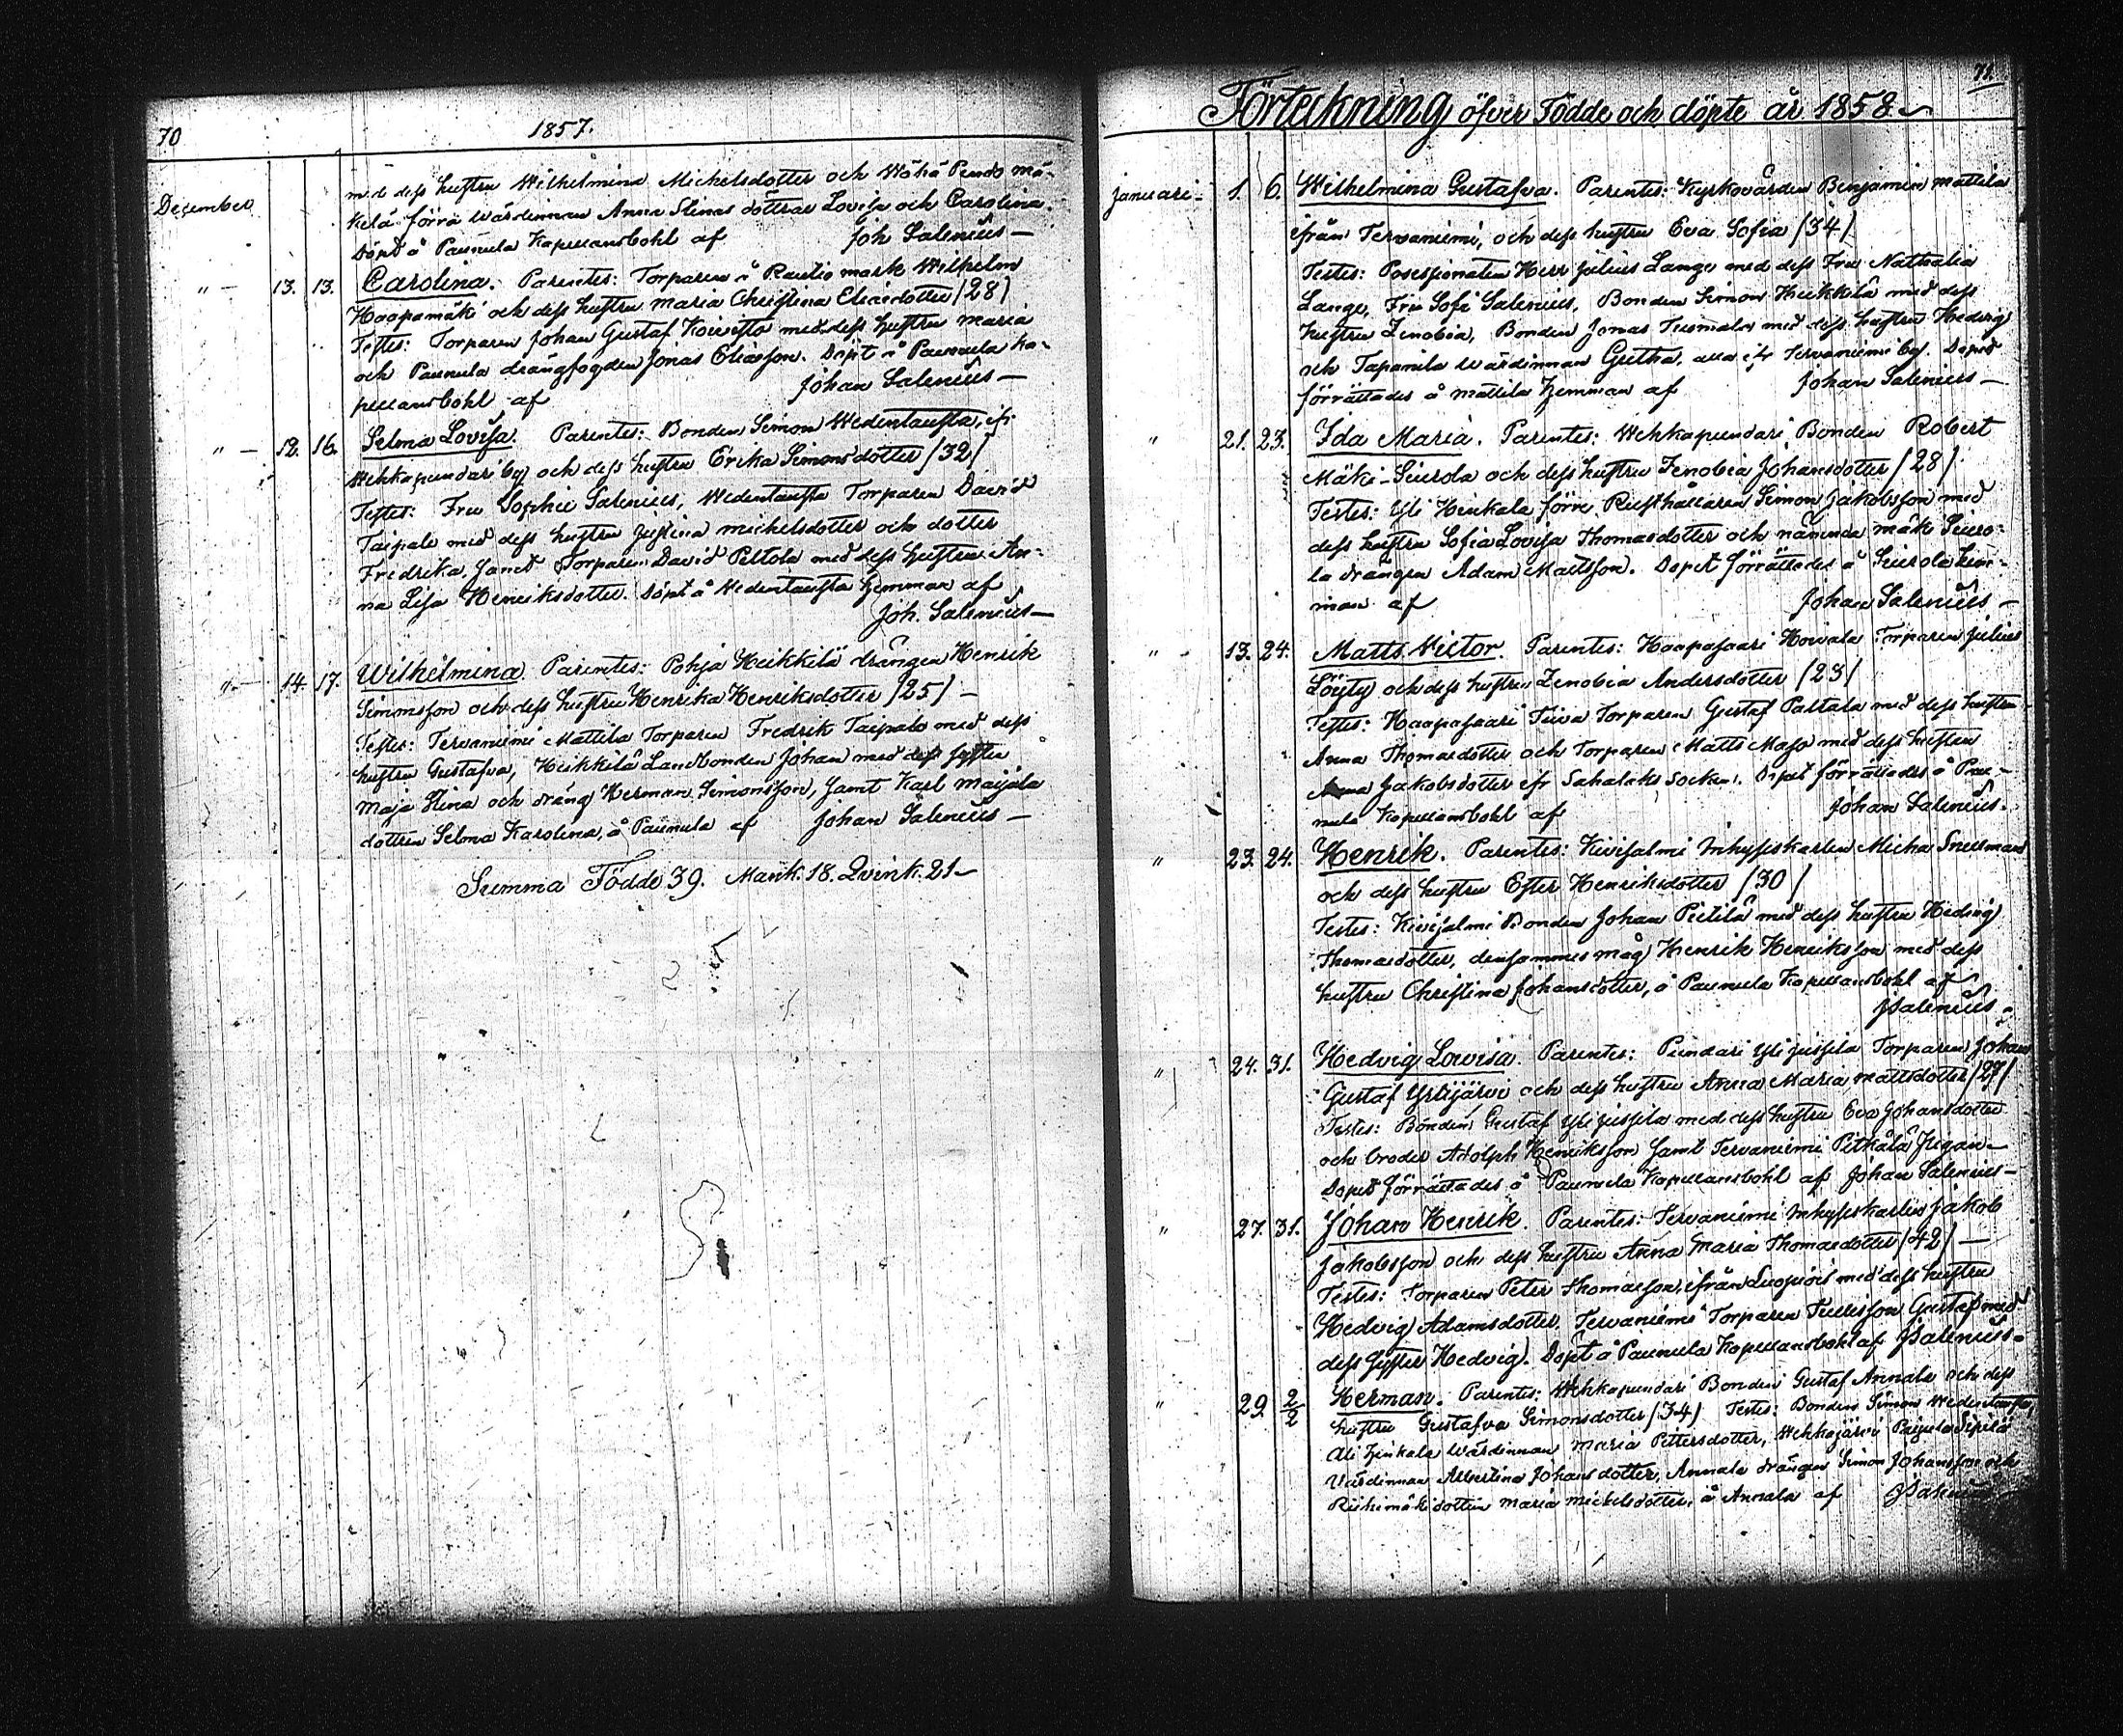 70
1857.
December
med dess hustru Wilhelmina Michelsdotter och Wähä Pendo mä-
kelä förra wärdinnan Anna Stinas döttrar Lovisa och Carolina.
Döpt å Paunula Kapellansbohl af Joh Salenius —
" — 13. 13. Carolina. Parentes: Torparen å Rautio mark Wilhelm
Haapamäki och dess hustru Maria Christina Eliaedotter /28/
Testes: Torparen Johan Gustaf Koivisto med dess hustru Maria
och Paunula drängfogden Jonas Eliasson. Döpt å Paunula Ka-
pellansbohl af Johan Salenius —
" — 12. 16. Selma Lovisa. Parentes: Bonden Simon Wedentausta, ifr.
Wehkapundari by och dess hustru Erika Simonsdotter /32/
Testes: Fru Sophie Salenius, Wedentausta Torparen David
Taipale med dess hustru Justina Michelsdotter och dotter
Fredrika, samt Torparen David Peltola med dess hustru An-
na Lisa Henriksdotter. Döpt å Wedentausta hemman af
Joh. Salenius —
" — 14. 17. Wilhelmina. Parentes: Pohja Heikkilä drängen Henrik
Simonsson och dess hustru Henrika Henriksdotter /25/ —
Testes: Tervaniemi Mattila Torparen Fredrik Taipale med dess
hustru Gustafva, Heikkilä Landbonden Johan med dess syster
Maja Stina och dräng Herman Simonsson, samt Karl Maijala
dottren Selma Karolina, å Paunula af Johan Salenius —
Summa Födde 39. Mank. 18. Qvink. 21 —
71.
Förteckning öfver Födde och döpte år 1858 —
Januari - 1. 6. Wilhelmina Gustafva. Parentes: Kyrkovärden Benjamin Mattila
ifrån Tervaniemi, och dess hustru Eva Sofia /34/
Testes: Possessionaten Herr Julius Lange med dess Fru Nathalia
Lange, Fru Sofi Salenius, Bonden Simon Heikkilä med dess
hustru Zenobia, Bonden Jonas Tuomala med dess hustru Hedvig
och Tapanila wärdinnan Gretha, alla ifr Tervaniemi by. Dopet
förrättades å Mattila hemman af Johan Salenius —
" 21. 23. Ida Maria. Parentes: Wehkapundari Bonden Robert
Mäki-Seurola och dess hustru Zenobia Johansdotter /28/
Testes: Yli Heinkala förre Rusthållaren Simon Jakobsson med
dess hustru Sofia Lovisa Thomasdotter och nämnde Mäki Seuro-
la drängen Adam Mattsson. Dopet förrättades å Seurola hem-
man af Johan Salenius —
" 13. 24. Matts Victor. Parentes: Haapasaari Torparen Julius
Löyty och dess hustru Zenobia Andersdotter /23/
Testes: Haapasaari Torparen Gustaf med dess hustru
Anna Thomasdotter och Torparen Matts Maso med dess hustru
Anna Jakobsdotter ifr Sahalaks Socken. Dopet förrättades å Pau-
nula Kapellansbohl af Johan Salenius.
" 23. 24. Henrik. Parentes: Kivisalmi Inhyseskarlen Micha Snellman
och dess hustru Ester Henriksdotter /30/
Testes: Kivisalmi Bonden Johan Pietilä med dess hustru Hedvig
Thomasdotter, densammes måg Henrik Henriksson med dess
hustru Christina Johansdotter, å Paunula Kapellansbohl af
JSalenius -
" 24. 31. Hedvig Lovisa. Parentes: Pundari Yli jussila Torparen Johan
Gustaf Yrtijärvi och dess hustru Anna Maria Mattsdotter /27/
Testes: Bonden Gustaf Yli jussila med dess hustru Eva Johansdotter
och broder Adolph Henriksson samt Tervaniemi Pitkälä
Dopet förrättades å Paunula Kapellansbohl af Johan Salenius —
" 27. 31. Johan Henrik. Parentes: Tervaniemi Inhyseskarlen Jakob
Jakobsson och dess hustru Anna Maria Thomasdotter /42/ —
Testes: Torparen Peter Thomasson, ifrån Luopiois med dess hustru
Hedvig Adamsdotter, Tervaniemi Torparen Gustaf med
dess syster Hedvig. Döpt å Paunula Kapellansbohl af JSalenius -
" 29. 2/2 Herman. Parentes: Wehkapundari Bonden Gustaf Annala och dess
hustru Gustafva Simonsdotter /34/ Testes: Bonden Simon Wedentausta,
Ali Heinkala wärdinnan Maria Pettersdotter, Wehkajärvi Paijula Sipilä
Värdinnan Albertina Johansdotter, Annala drängen Simon Johansson och
dottren Maria Michelsdotter, å Annala af JSalenius